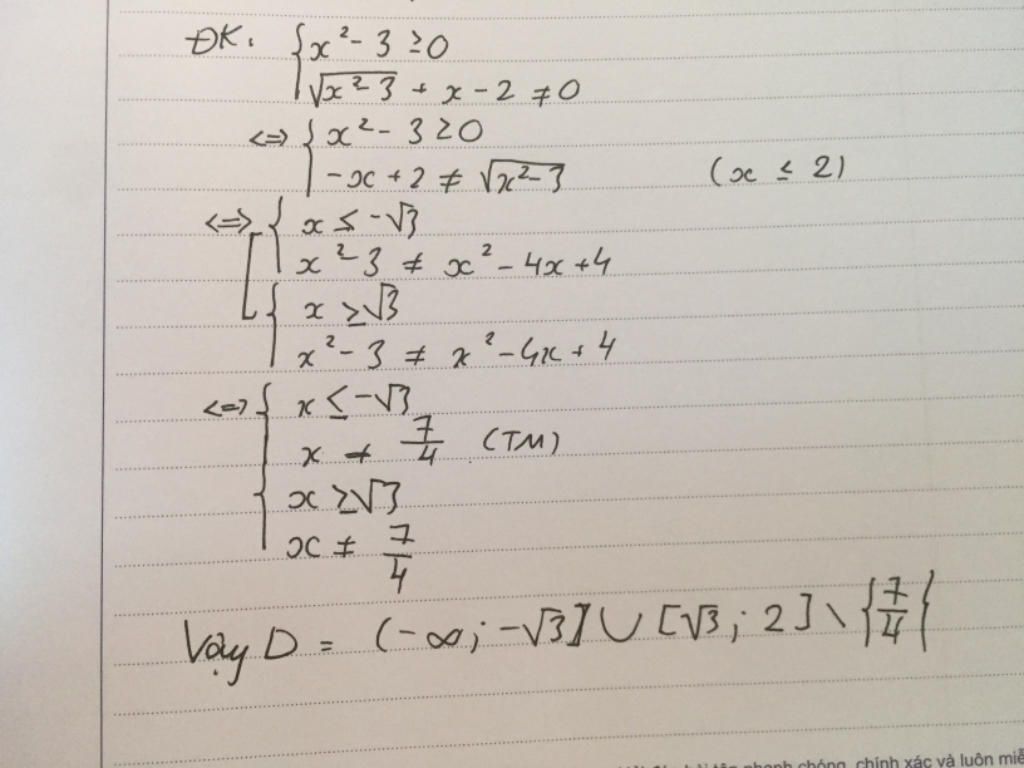 ĐK: { x² - 3 ≥ 0
√(x² - 3) + x - 2 ≠ 0
<=> { x² - 3 ≥ 0
-x + 2 ≠ √(x² - 3) (x ≤ 2)
<=> [ { x ≤ -√3
x² - 3 ≠ x² - 4x + 4
{ x ≥ √3
x² - 3 ≠ x² - 4x + 4
<=> { x ≤ -√3
x ≠ 7/4 (TM)
x ≥ √3
x ≠ 7/4
Vậy D = (-∞; -√3] ∪ [√3; 2] \ {7/4}
nhanh chóng, chính xác và luôn miễ